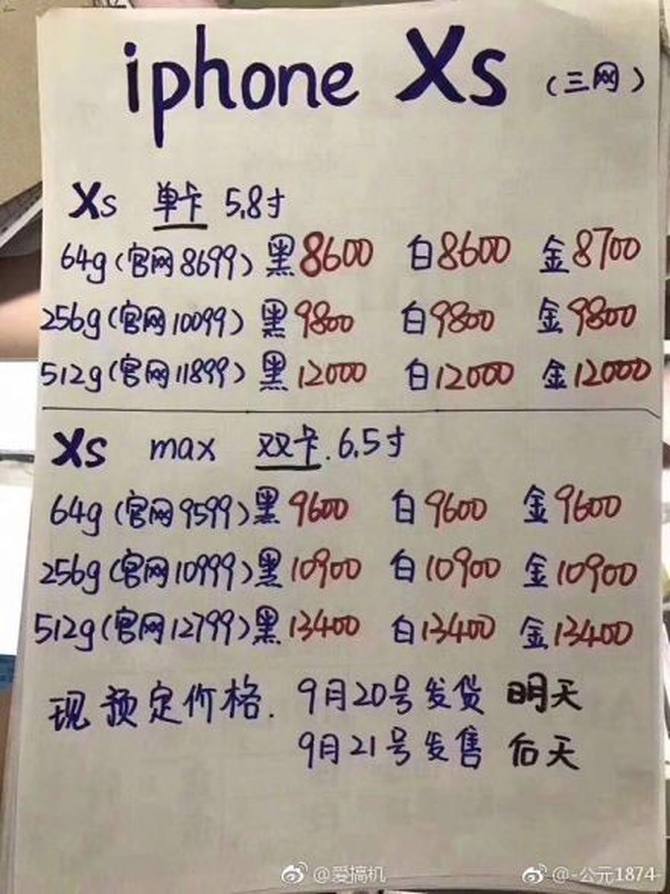 iphone Xs (三网)
Xs 单卡 5.8寸
64g(官网8699)黑8600 白8600 金8700
256g(官网10099)黑9800 白9800 金9800
512g(官网11899)黑12000 白12000 金12000
Xs max 双卡.6.5寸
64g(官网9599)黑9600 白9600 金9600
256g(官网10999)黑10900 白10900 金10900
512g(官网12799)黑13400 白13400 金13400
现预定价格. 9月20号发货 明天
9月21号发售 后天
@爱搞机 @-公元1874-